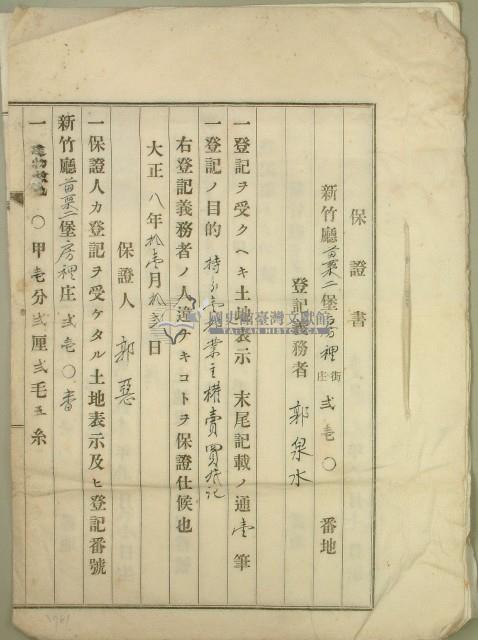 保證書
新竹廳苗栗二堡房裡街庄 弍壱〇 番地
登記義務者 郭泉水
一登記ヲ受クヘキ土地表示 末尾記載ノ通壱筆
一登記ノ目的 持分 業主權賣買登記
右登記義務者ノ人違ナキコトヲ保證仕候也
大正八年拾壱月拾 日
保證人 郭
一保證人カ登記ヲ受ケタル土地表示及ヒ登記番號
新竹廳苗栗二堡房裡庄弍壱〇番
一 建物敷地 〇甲壱分弍厘弍毛五糸
國史館臺灣文獻館
TAIWAN HISTORICA